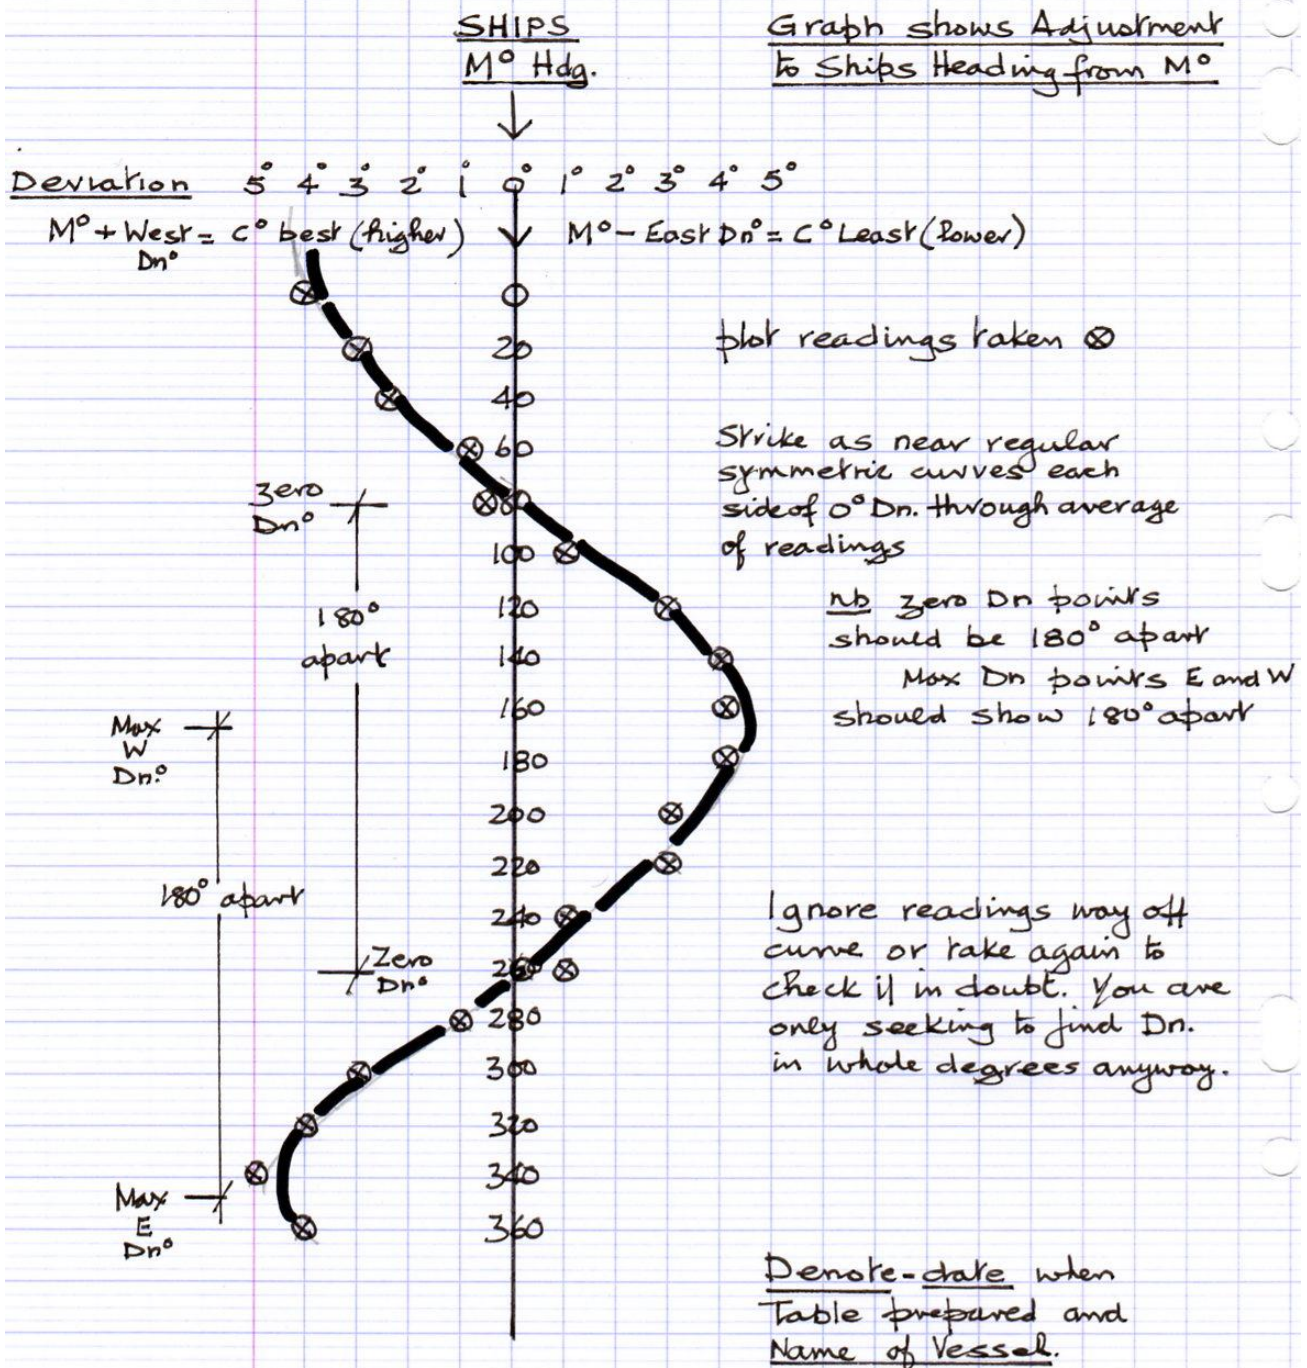 SHIPS
M° Hdg.
Graph shows Adjustment
to Ships Heading from M°
Deviation 5° 4° 3° 2° 1° 0° 1° 2° 3° 4° 5°
M° + West = C° best (higher)
Dn°
M° - East Dn° = C° Least (Lower)
0
20
40
60
80
100
120
140
160
180
200
220
240
260
280
300
320
340
360
plot readings taken ⊗
Strike as near regular
symmetric curves each
side of 0° Dn. through average
of readings
nb zero Dn points
should be 180° apart
Max Dn points E and W
should show 180° apart
Zero
Dn°
180°
apart
Zero
Dn°
Max
W
Dn°
180° apart
Max
E
Dn°
Ignore readings way off
curve or take again to
check if in doubt. You are
only seeking to find Dn.
in whole degrees anyway.
Denote-date when
Table prepared and
Name of Vessel.